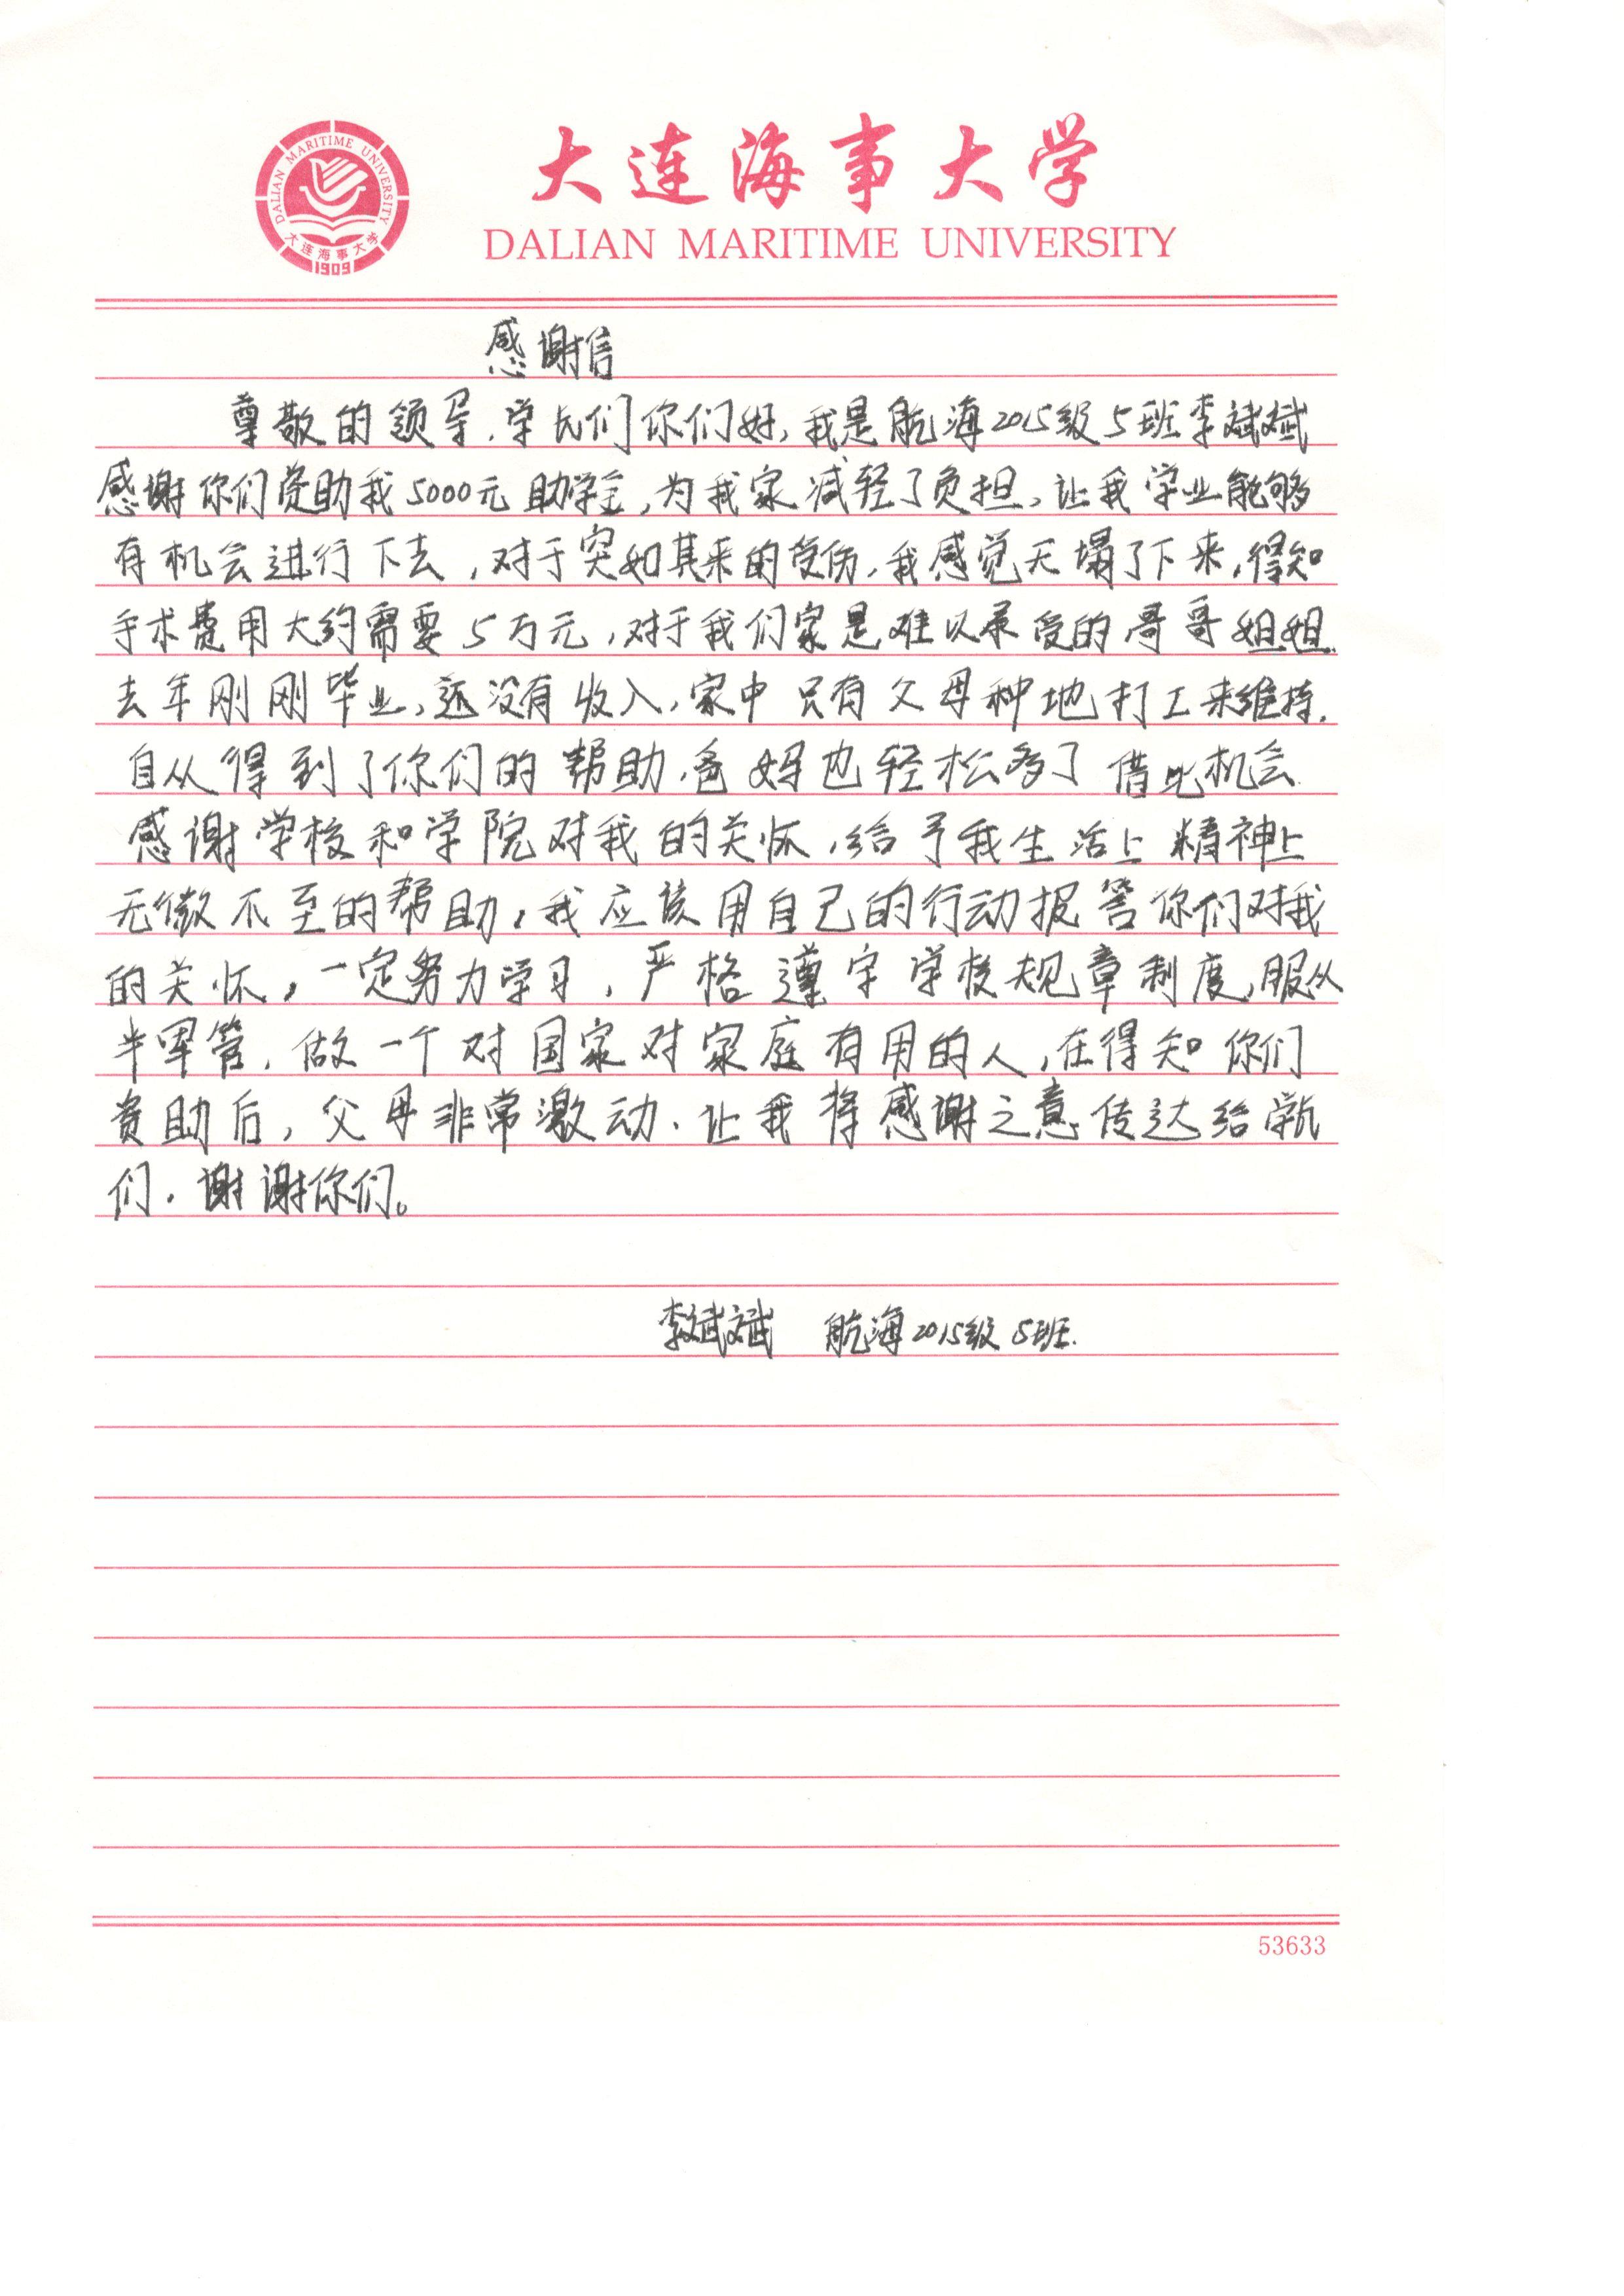 DALIAN MARITIME UNIVERSITY
大连海事大学
1909
大连海事大学
DALIAN MARITIME UNIVERSITY
感谢信
尊敬的领导、学长们你们好，我是航海2015级5班李斌斌
感谢你们资助我5000元助学金，为我家减轻了负担，让我学业能够
有机会进行下去，对于突如其来的受伤，我感觉天塌了下来，得知
手术费用大约需要5万元，对于我们家是难以承受的哥哥姐姐
去年刚刚毕业，还没有收入，家中只有父母种地打工来维持，
自从得到了你们的帮助，爸妈也轻松多了 借此机会
感谢学校和学院对我的关怀，给予我生活上精神上
无微不至的帮助，我应该用自己的行动报答你们对我
的关怀，一定努力学习，严格遵守学校规章制度，服从
半军管，做一个对国家对家庭有用的人，在得知你们
资助后，父母非常激动，让我将感谢之意传达给学长
们，谢谢你们。
李斌斌 航海2015级5班.
53633